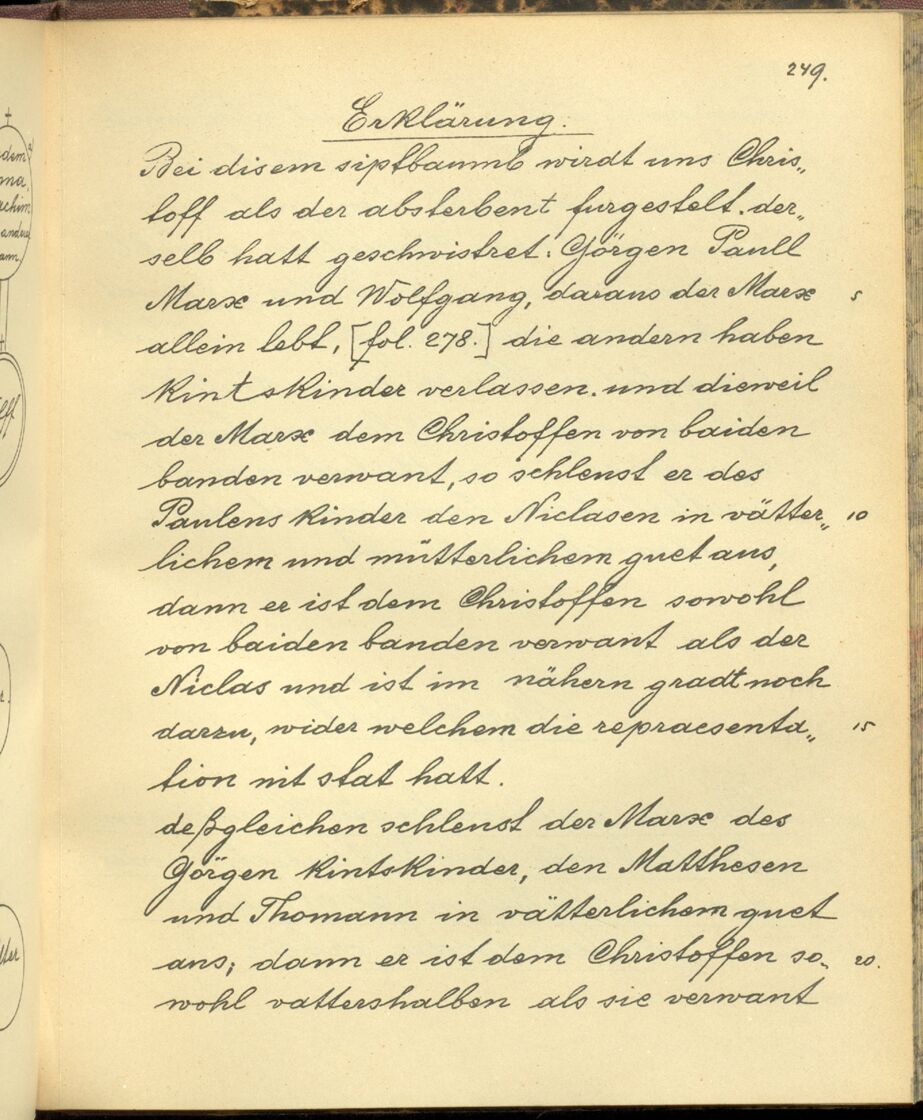 249.
Erklärung.
Bei disem siptbaumb wirdt uns Chris„
toff als der absterbent furgestelt. der„
selb hatt geschwistret: Görgen Paull
Marx und Wolfgang, daraus der Marx 5
allein lebt, [fol. 278.] die andern haben
kintskinder verlassen. und dieweil
der Marx dem Christoffen von baiden
banden verwant, so schleust er des
Paulens kinder den Niclasen in vätter„ 10
lichem und mütterlichem guet aus,
dann er ist dem Christoffen sowohl
von baiden banden verwant als der
Niclas und ist im nähern gradt noch
darzu, wider welchem die repraesenta„ 15
tion nit stat hatt.
deßgleichen schleust der Marx des
Görgen kintskinder, den Matthesen
und Thomann in vätterlichem guet
aus; dann er ist dem Christoffen so„ 20.
wohl vattershalben als sie verwant